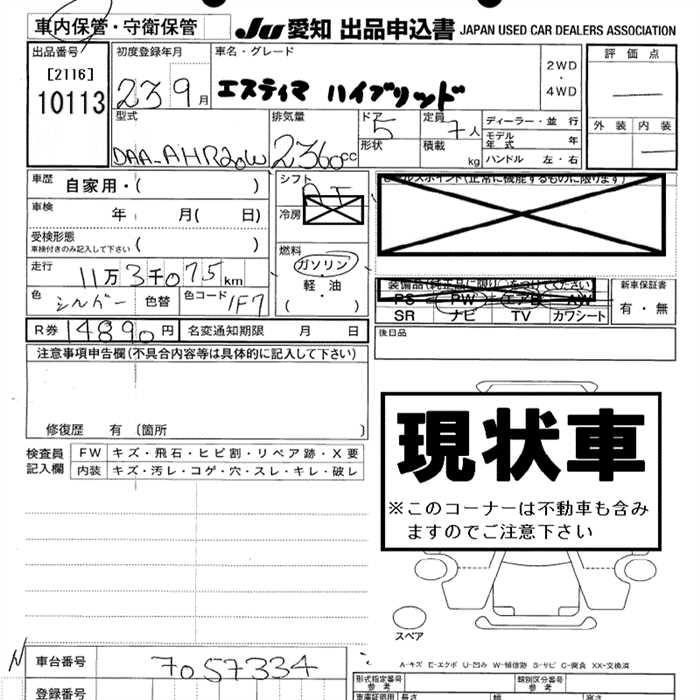 車内保管・守衛保管
JU 愛知 出品申込書 JAPAN USED CAR DEALERS ASSOCIATION
出品番号
[2116]
10113
初度登録年月
23 9月
車名・グレード
エスティマ ハイブリッド
2WD
・
4WD
評価点
外装 内装
型式
DAA-AHR20W
排気量
2360cc
ドア
5
形状
定員
7人
積載
kg
ディーラー・並行
モデル年式 年
ハンドル 左・右
車歴 自家用・( )
車検 年 月( 日)
受検形態
車検付きのみ記入して下さい ( )
走行 11万3千075km
色 シルバー 色替 色コード 1F7
シフト
AT
冷房
燃料
ガソリン
・
軽油
( )
セールスポイント(正常に機能するものに限ります)
装備品(純正品に限り○をつけてください)
PS PW エアB AW
SR ナビ TV カワシート
新車保証書
有・無
R券 14890円 名変通知期限 月 日
後日品
注意事項申告欄(不具合内容等は具体的に記入して下さい)
修復歴 有 〔箇所 〕
検査員記入欄
FW キズ・飛石・ヒビ割・リペア跡・X要
内装 キズ・汚レ・コゲ・穴・スレ・キレ・破レ
現状車
※このコーナーは不動車も含み
ますのでご注意下さい
スペア
A-キズ E-エクボ U-凹み W-補修跡 S-サビ C-腐食 XX-交換済
車台番号 7057334
登録番号
形式指定番号
参考
類別区分番号
参考
車庫証明用
長さ
幅
高さ